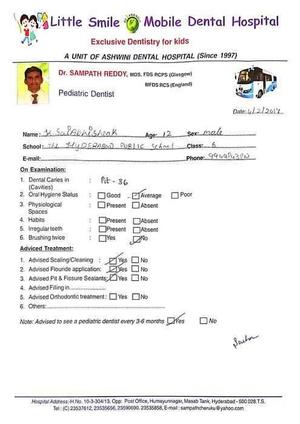 Little Smile Mobile Dental Hospital
Exclusive Dentistry for kids
A UNIT OF ASHWINI DENTAL HOSPITAL (Since 1997)
Dr. SAMPATH REDDY, MDS, FDS RCPS (Glasgow)
MFDS RCS (England)
Pediatric Dentist
Date:
Name: Age: 12 Sex: male
School: THE HYDERABAD PUBLIC School Class: 6
E-mail: Phone:
On Examination:
1. Dental Caries in (Cavities) : Pit - 36
2. Oral Hygiene Status : Good Average Poor
3. Physiological Spaces : Present Absent
4. Habits : Present Absent
5. Irregular teeth : Present Absent
6. Brushing twice : Yes No
Adviced Treatment:
1. Advised Scaling/Cleaning : Yes No
2. Advised Flouride application: Yes No
3. Advised Pit & Fissure Sealants Yes No
4. Advised Filling in
5. Advised Orthodontic treatment: Yes No
6. Others:
Note: Advised to see a pediatric dentist every 3-6 months Yes No
Hospital Address: H.No. 10-3-304/13, Opp: Post Office, Humayunnagar, Masab Tank, Hyderabad - 500 028 T.S.
Tel: (C) 23537612, 23535656, 23590690, 23535858, E-mail: sampathcheruku@yahoo.com